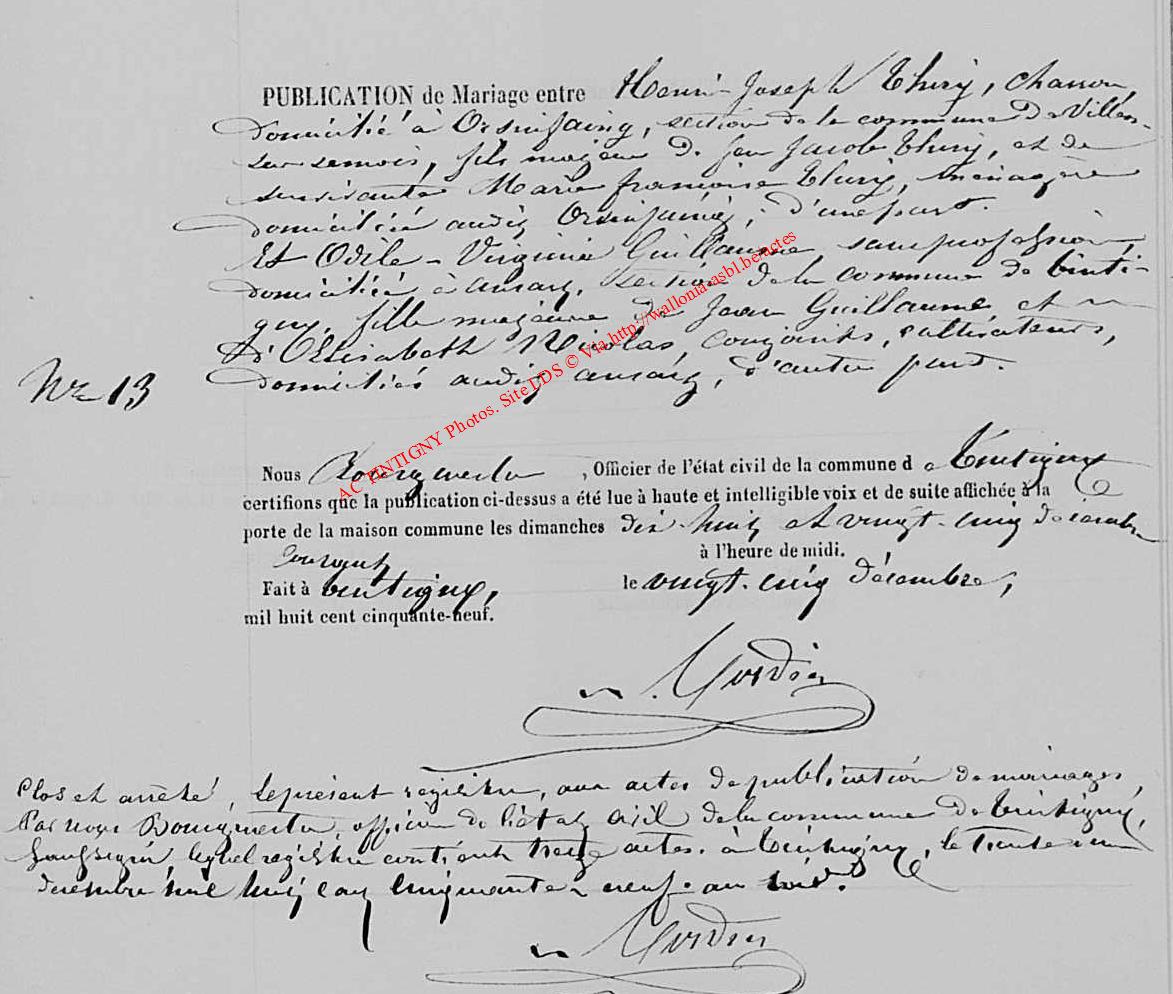 PUBLICATION de Mariage entre Henri-Joseph Thiry, charron,
domicilié à Orsinfaing, section de la commune de Villers-
sur semois, fils majeur de feu Jacob Thiry, et de
survivante Marie françoise Thiry, ménagère
domiciliée audit Orsinfaing, d'une part.
Et Odile-Virginie Guillaume sans profession,
domiciliée à ansart, section de la commune de tinti-
gny, fille majeure de Jean Guillaume, et
d'Elisabeth Nicolas, conjoints, cultivateurs,
domiciliés audit ansart, d'autre part.
No 13
Nous , Officier de l'état civil de la commune de Tintigny
certifions que la publication ci-dessus a été lue à haute et intelligible voix et de suite affichée à la
porte de la maison commune les dimanches dix-huit et vingt-cinq décembre
courant à l'heure de midi.
Fait à tintigny, le vingt-cinq décembre,
mil huit cent cinquante-neuf.
Clos et arrêté, le présent registre, aux actes de publication de mariages,
Par nous , officier de l'état civil de la commune de Tintigny,
soussigné lequel registre contient treize actes. à Tintigny, le Trente un
decembre mil huit cent cinquante neuf au soir.
AC TINTIGNY Photos. Site LDS © Via http://wallonia-asbl.be/actes